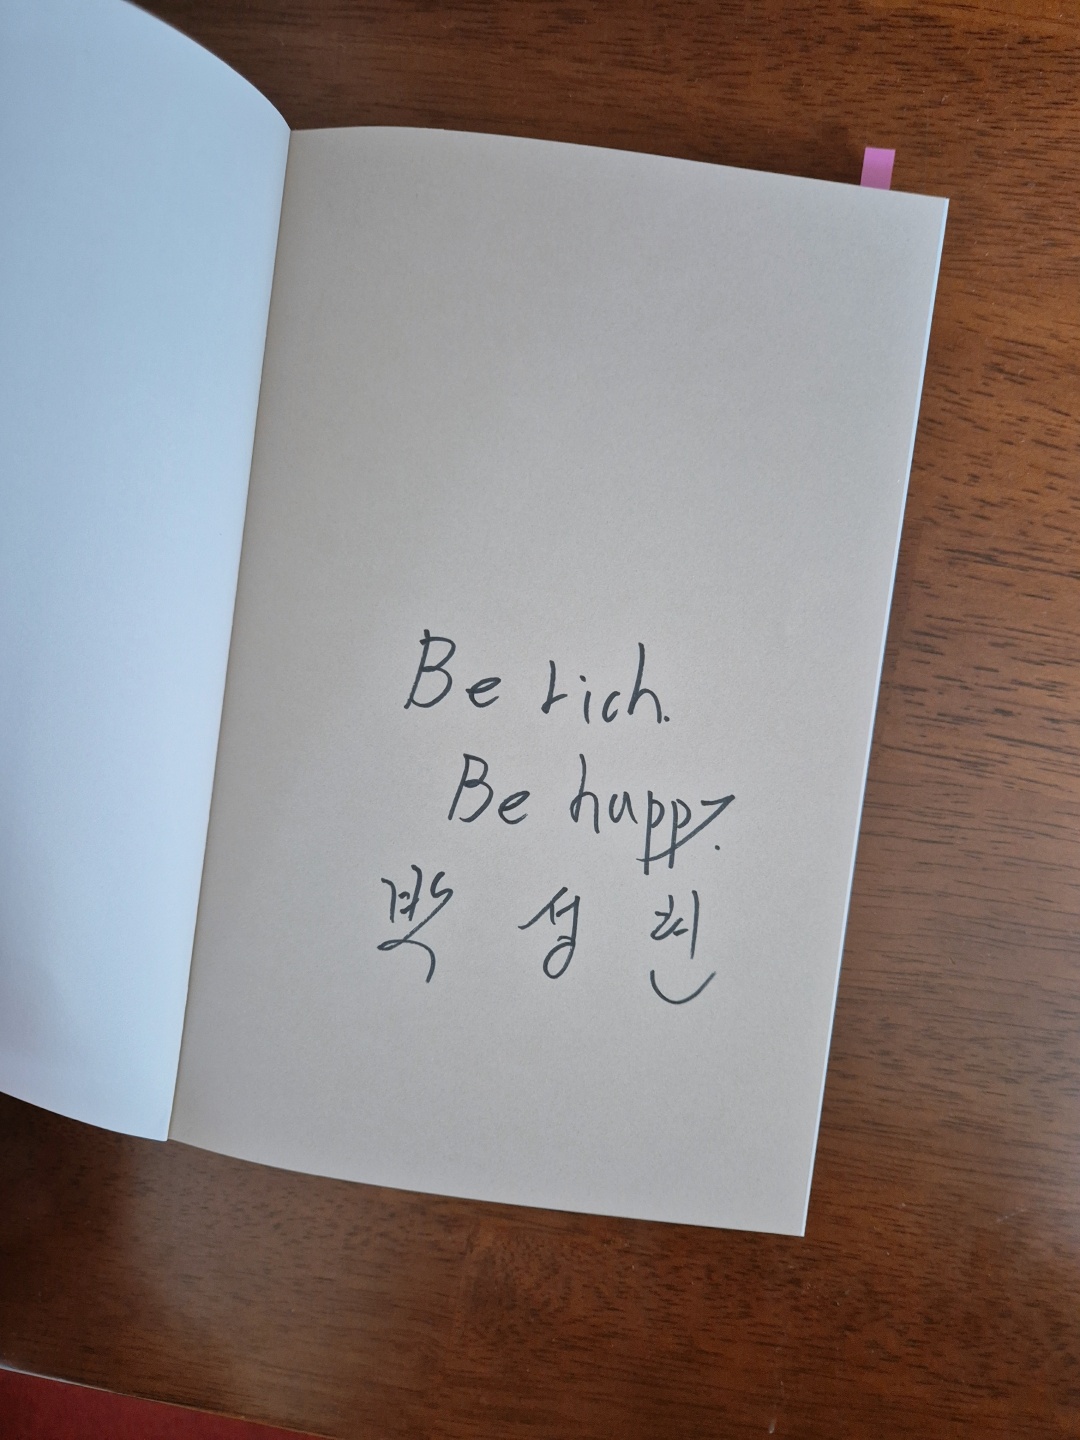 Be rich.
Be happy.
박 성 현